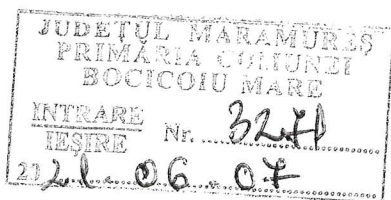 JUDEȚUL MARAMUREȘ
PRIMĂRIA COMUNEI
BOCICOIU MARE
INTRARE
IEȘIRE Nr. 3271
2021 06 07